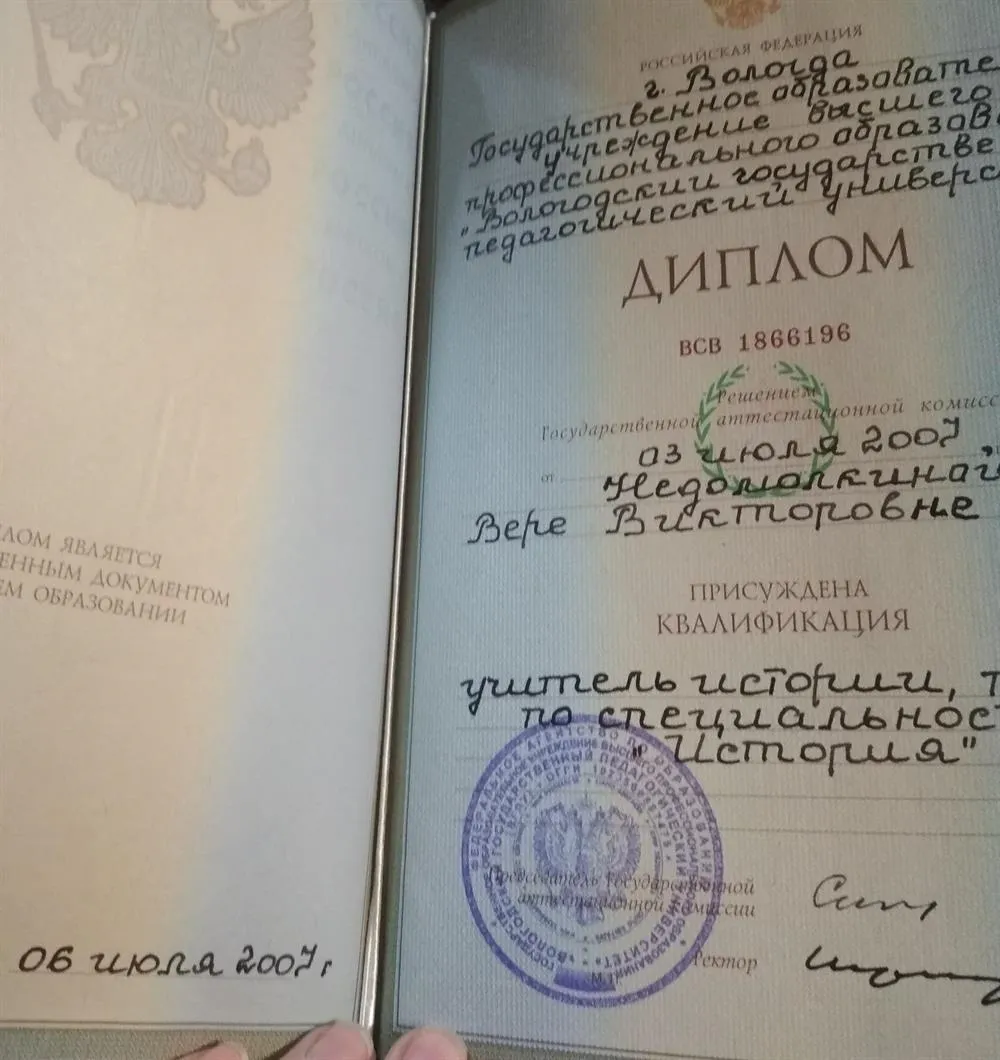 ЛОМ ЯВЛЯЕТСЯ
ЕННЫМ ДОКУМЕНТОМ
ЕМ ОБРАЗОВАНИИ
06 июля 2007 г
РОССИЙСКАЯ ФЕДЕРАЦИЯ
г. Вологда
Государственное образовате
учреждение высшего
профессионального образов
"Вологодский государстве
педагогический универс
ДИПЛОМ
ВСВ 1866196
Решением
Государственной аттестационной комисс
от 03 июля 2007
Недомолкиной
Вере Викторовне
ПРИСУЖДЕНА
КВАЛИФИКАЦИЯ
учитель истории, т
по специальнос
"История"
Председатель Государственной
аттестационной комиссии
Ректор
М.П.
ФЕДЕРАЛЬНОЕ АГЕНТСТВО ПО ОБРАЗОВАНИЮ